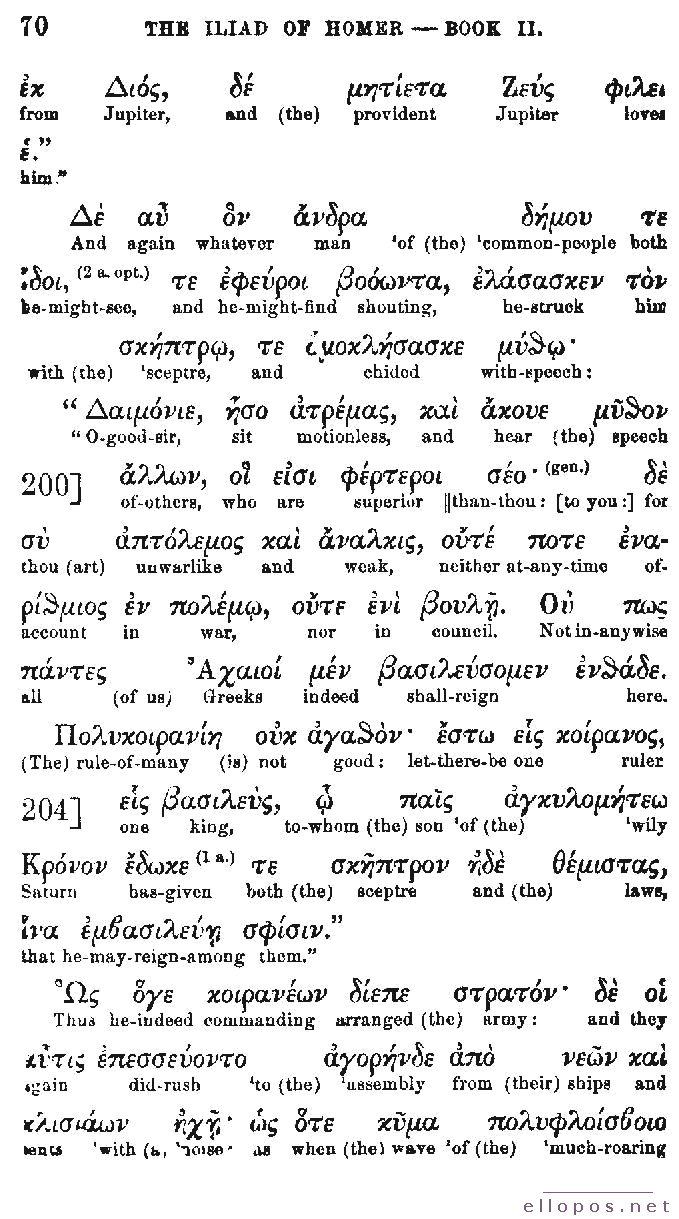 70 THE ILIAD OF HOMER — BOOK II.
ἐκ Διός, δέ μητίετα Ζεύς φιλει
from Jupiter, and (the) provident Jupiter loves
ἑ.”
him.”
Δὲ αὖ ὃν ἄνδρα δήμου τε
And again whatever man ‘of (the) ‘common-people both
ἴδοι, (2 a. opt.) τε ἐφεύροι βοόωντα, ἐλάσασκεν τὸν
he-might-see, and he-might-find shouting, he-struck him
σκήπτρῳ, τε ὁμοκλήσασκε μύϑῳ·
with (the) ‘sceptre, and chided with-speech:
“ Δαιμόνιε, ἧσο ἀτρέμας, καὶ ἄκουε μῦϑον
“ O-good-sir, sit motionless, and hear (the) speech
200] ἄλλων, οἳ εἰσι φέρτεροι σέο· (gen.) δὲ
of-others, who are superior ||than-thou: [to you:] for
σὺ ἀπτόλεμος καὶ ἄναλκις, οὔτέ ποτε ἐνα-
thou (art) unwarlike and weak, neither at-any-time of-
ρίϑμιος ἐν πολέμῳ, οὔτε ἐνὶ βουλῇ. Οὐ πως
account in war, nor in council. Not in-anywise
πάντες Ἀχαιοί μέν βασιλεύσομεν ἐνϑάδε.
all (of us) Greeks indeed shall-reign here.
Πολυκοιρανίη οὐκ ἀγαϑὸν· ἔστω εἷς κοίρανος,
(The) rule-of-many (is) not good: let-there-be one ruler
204] εἷς βασιλεὺς, ᾧ παῖς ἀγκυλομήτεω
one king, to-whom (the) son ‘of (the) ‘wily
Κρόνον ἔδωκε (1 a.) τε σκῆπτρον ἠδὲ θέμιστας,
Saturn has-given both (the) sceptre and (the) laws,
ἵνα ἐμβασιλεύῃ σφίσιν.”
that he-may-reign-among them.”
Ὣς ὅγε κοιρανέων δίεπε στρατόν· δὲ οἱ
Thus he-indeed commanding arranged (the) army: and they
αὖτις ἐπεσσεύοντο ἀγορήνδε ἀπὸ νεῶν καὶ
again did-rush ‘to (the) ‘assembly from (their) ships and
κλισιάων ἠχῇ· ὡς ὅτε κῦμα πολυφλοίσβοιο
tents ‘with (a, ‘noise· as when (the) wave ‘of (the) ‘much-roaring
ellopos.net